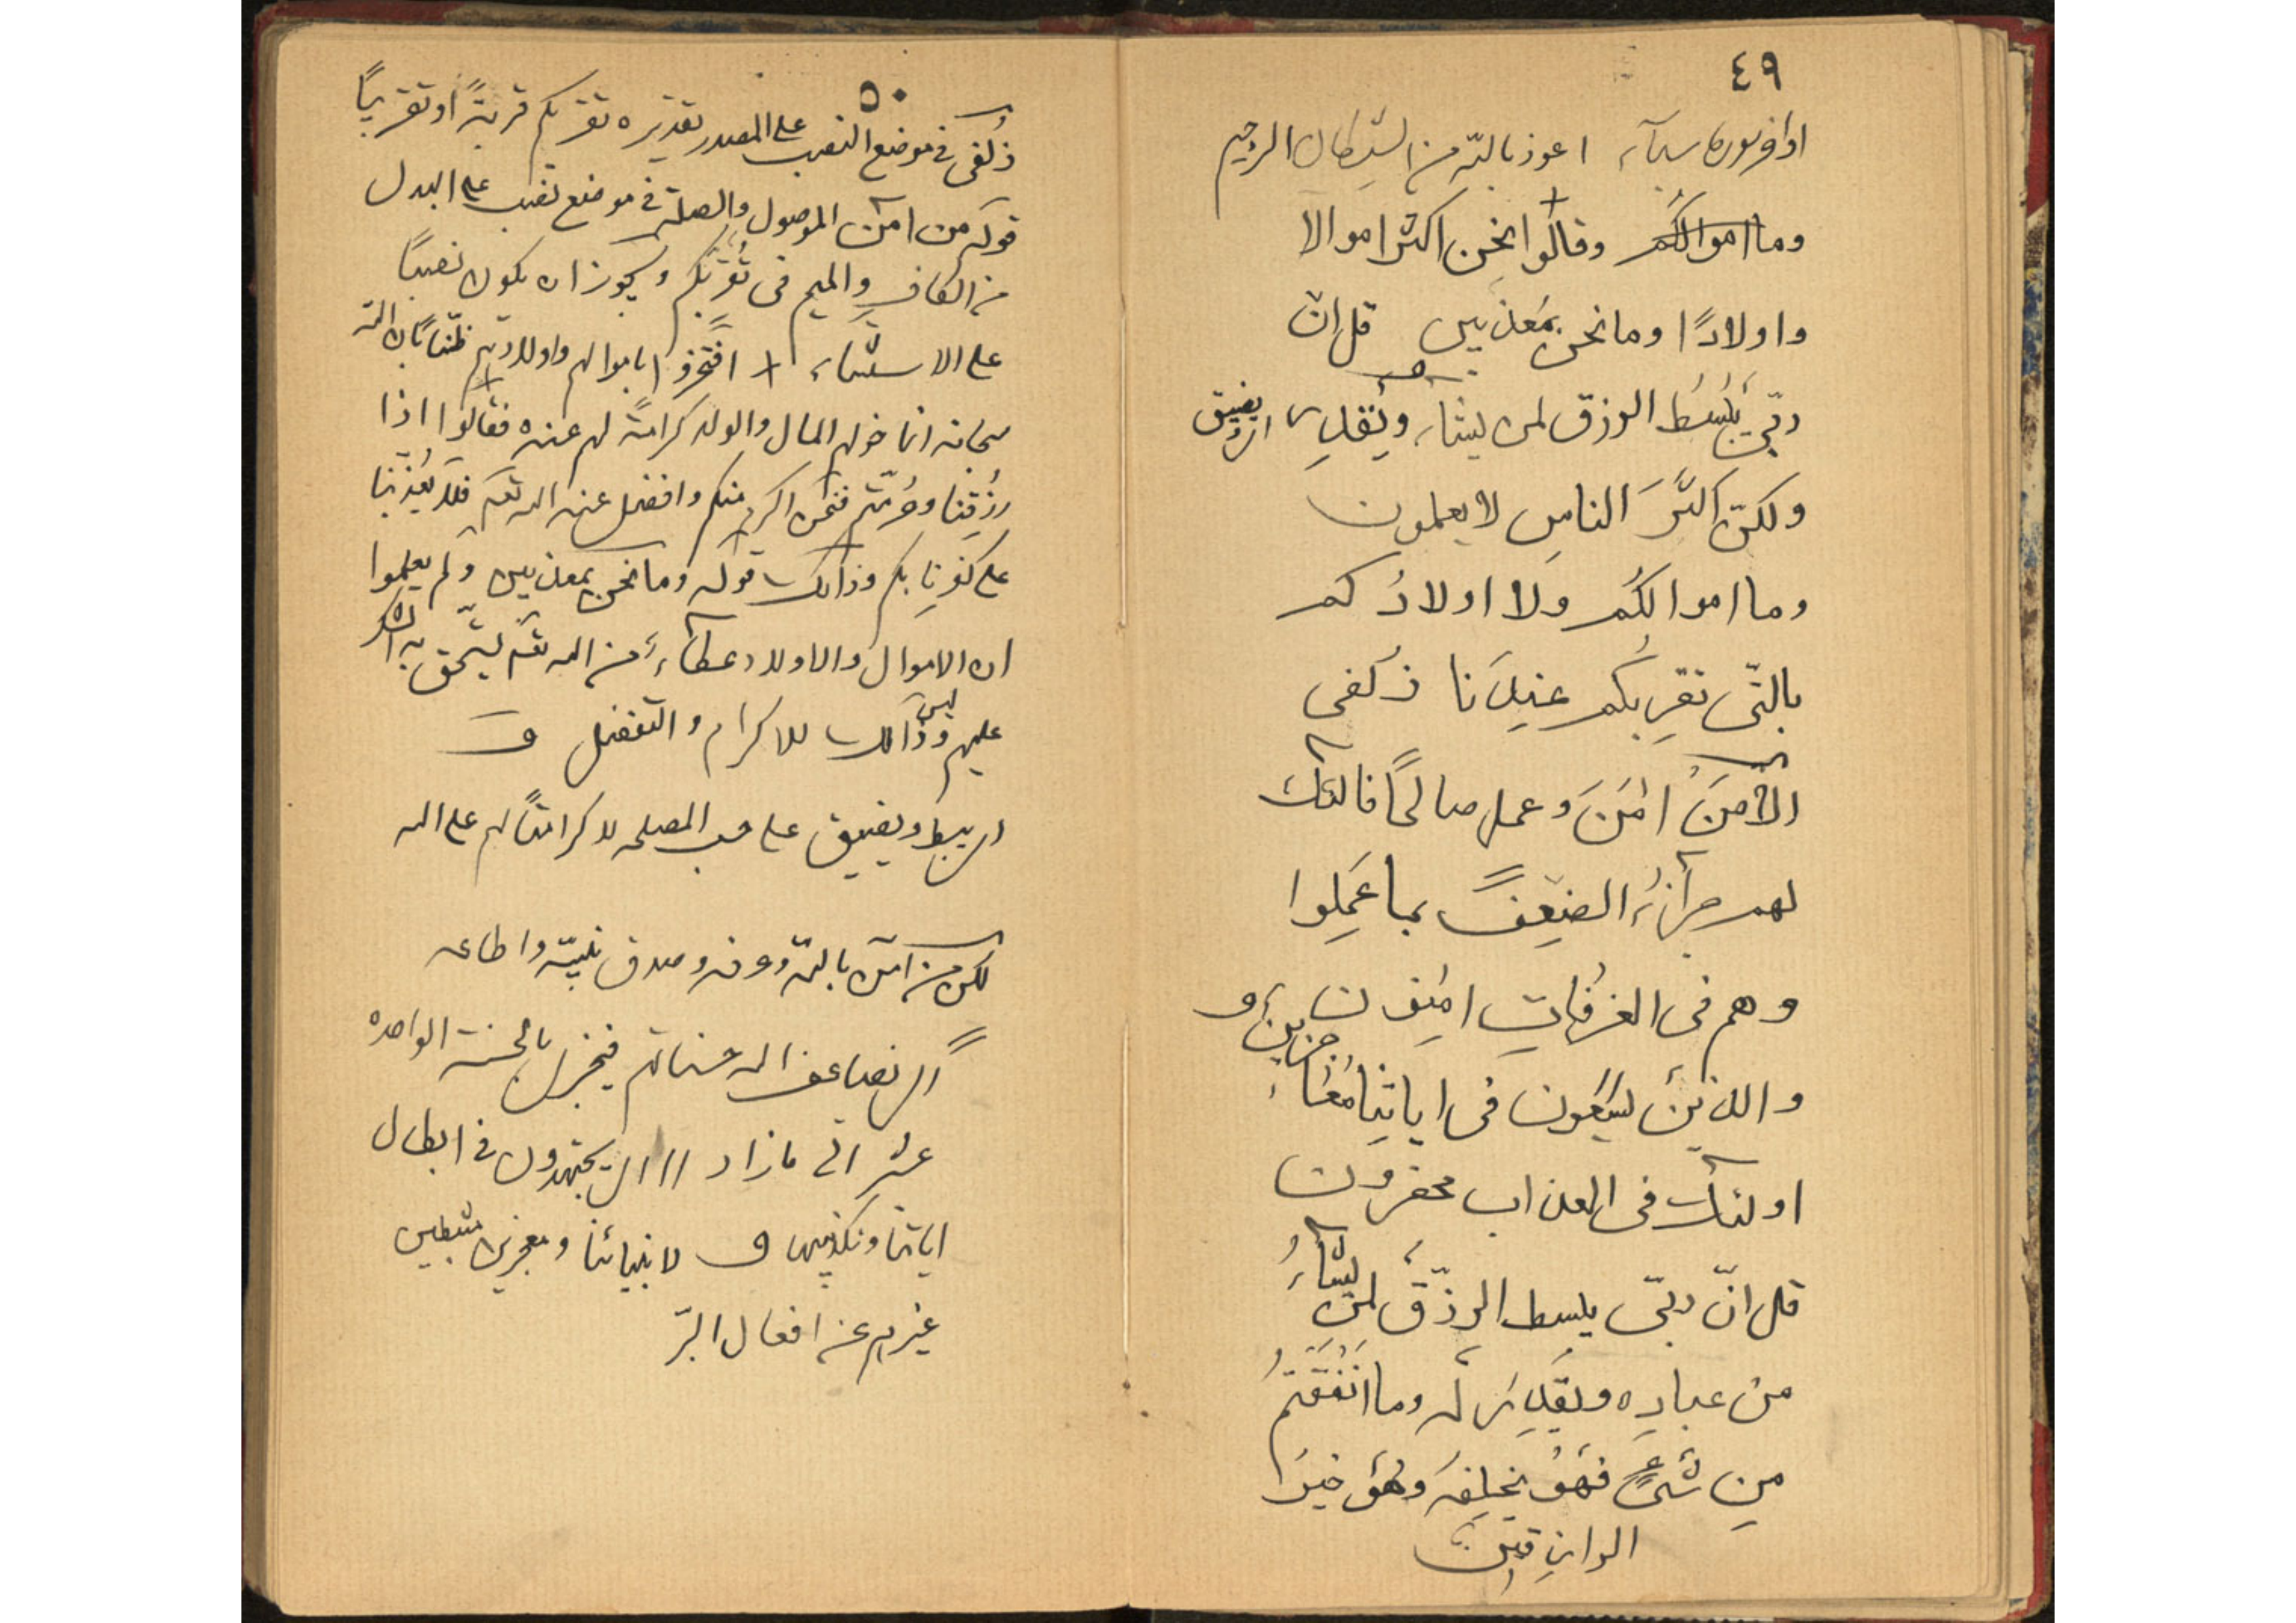 ٤٩
اواخر سوره سبآء اعوذ بالله من الشيطان الرجيم
وما اموالكُم وقالُوا نحن اكثر اموالا
واولادًا وما نحن بمُعذبين قل انّ
ربّي يَبسُط الرزق لمن يشآء ويَقدِر اى يضيق
ولكنّ اكثَرَ الناسِ لا يعلمون
وما اموالكُم ولا اولادُكم
بالتّى تقرِبُكم عنِدَنا زُلفى
الّا مَنَ امَنَ وعمل صالحًا فاولئك
لهم جزآءُ الضِعف بما عَمِلوا
وهم فى الغرُفاتِ امِنون
والذينَ يسَعَون فى اياتِنا مُعَاجزين
اولئك فى العذاب محضرون
قل انّ ربّى يبسط الرزّقَ لمن يشآءُ
من عبادِه ويقدِرُ له وما انَفَقتمُ
مِن شَىءٍ فهَوُ يخلِفهَ وهُوَ خيرَ
الرازِقيِنَ
٥٠
زُلفى فى موضع النصب على المصدر تقديره تقربكم قربةً او تقريبًا
قوله من امن الموصول والصلة فى موضع نصب على البدل
من الكاف والميم فى تُقرّبكم ويجوز ان يكون نصبًا
على الاستثناء + افتخروا باموالهم واولادهم ظنّا بان الله
سبحانه انما خولهم المال والولد كرامةً لهم عنده فقالوا اذا
رزُقِنا وحُرِمتم فنحن اكرم منكم وافضل عند الله تعـ فلا يُعذّبنا
على كفرِنا بكم وذالك قوله وما نحن بمعذبين ولم يعلموا
ان الاموال والاولاد عطآءٌ من الله تعـ يستحق به الشكر
عليهم وليس ذالك للاكرام والتفضل
اى يبسط ويضيق على حسب المصلحه لا كرامتًا لهم على الله
لكن من امن بالله وعرفه وصدق نبيّه واطاعه
اى يضاعف الله حسناتهم فيجزى بالحسنة الواحده
عشر الى ما زاد /// اى يجتهدون فى ابطال
اياتنا وتكذيبها لانبيائنا ومعجزين مثبطين
غيرهم عن افعال البرّ